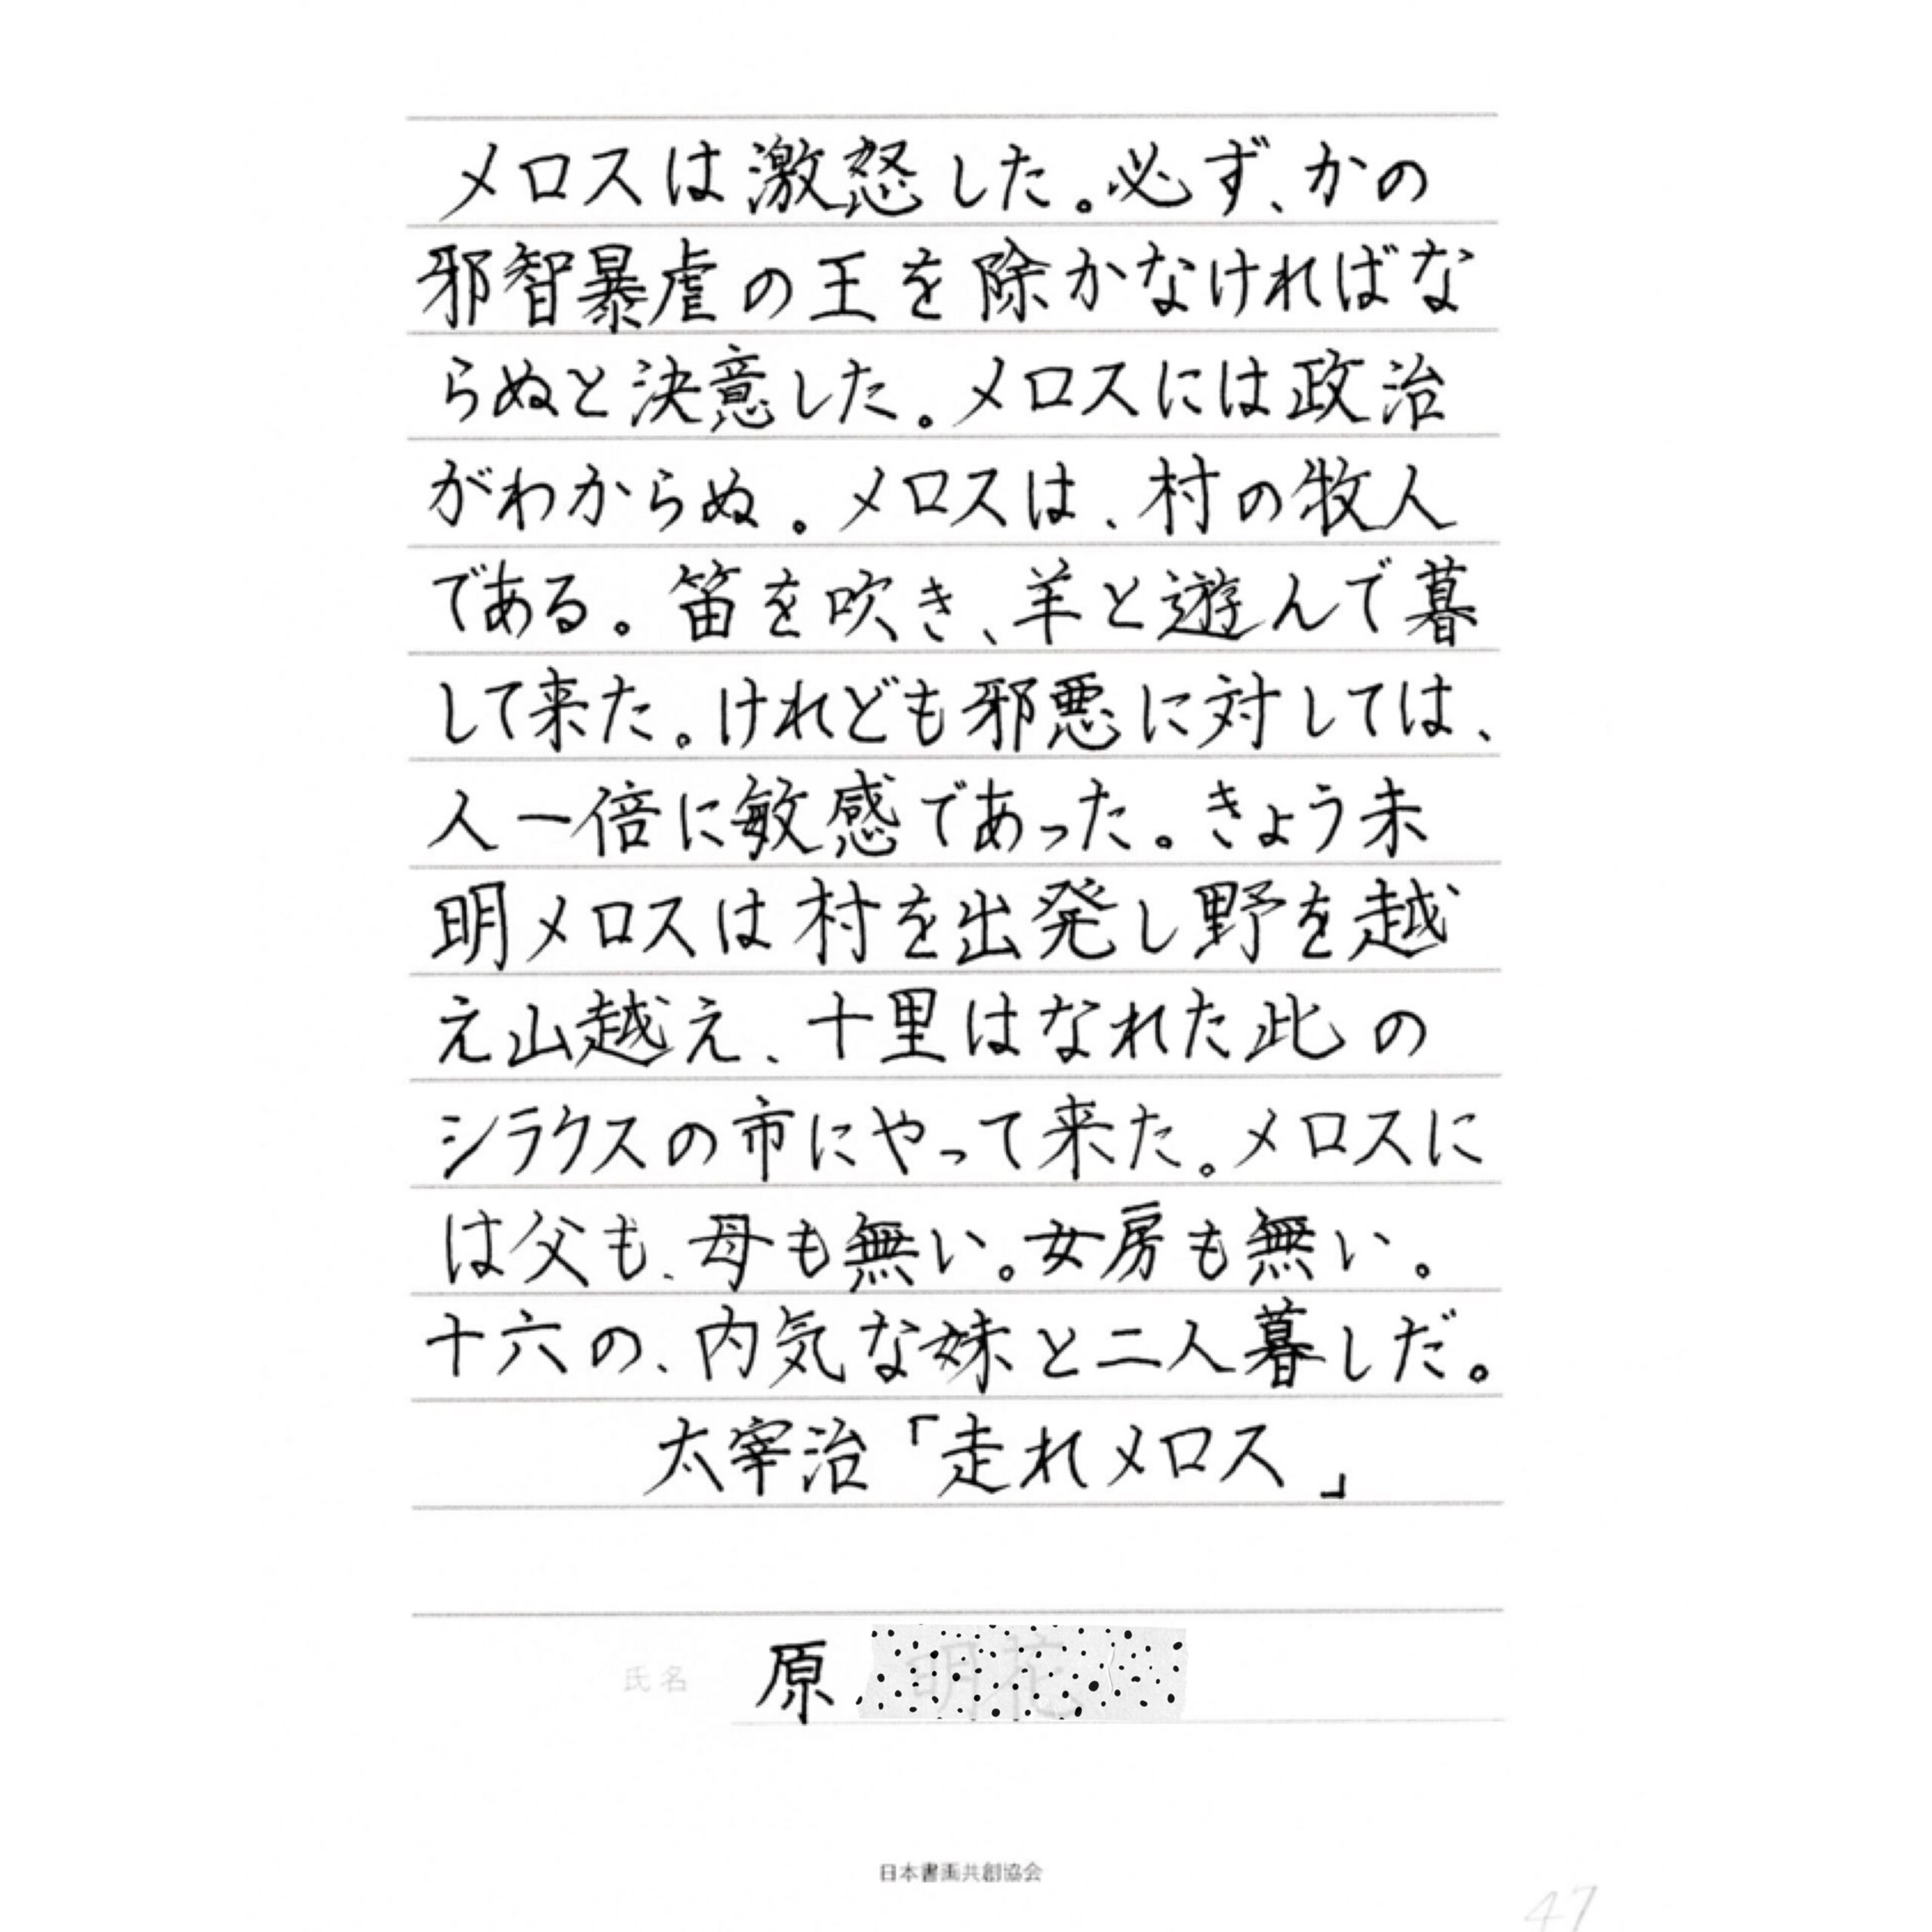 メロスは激怒した。必ず、かの
邪智暴虐の王を除かなければな
らぬと決意した。メロスには政治
がわからぬ。メロスは、村の牧人
である。笛を吹き、羊と遊んで暮
して来た。けれども邪悪に対しては、
人一倍に敏感であった。きょう未
明メロスは村を出発し野を越
え山越え、十里はなれた此の
シラクスの市にやって来た。メロスに
は父も、母も無い。女房も無い。
十六の、内気な妹と二人暮しだ。
太宰治「走れメロス」
氏名 原
日本書画共創協会
47